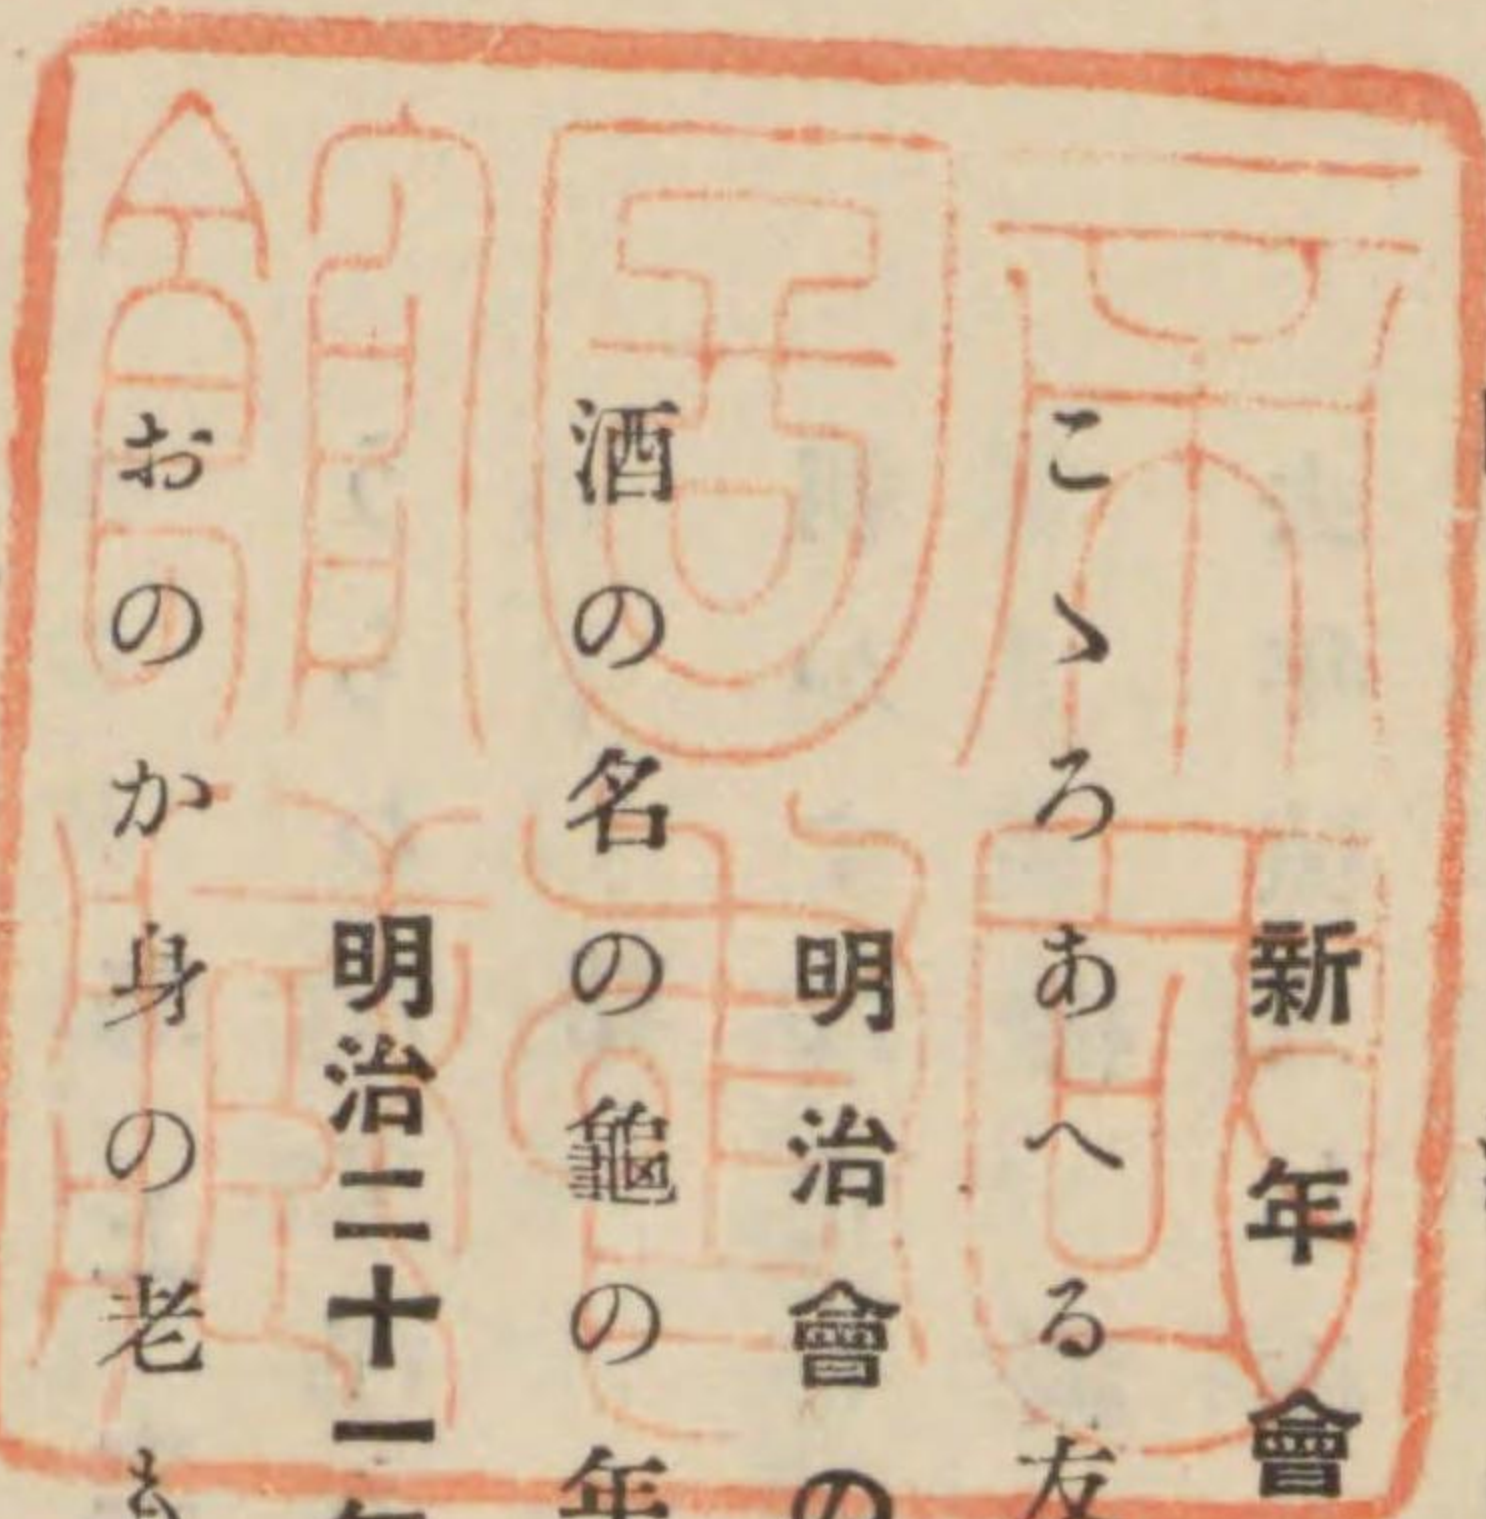 新年會
こゝろあへる友
明治會の
酒の名の龜の年
明治二十一年
おのか身の老も
帝國圖書館藏